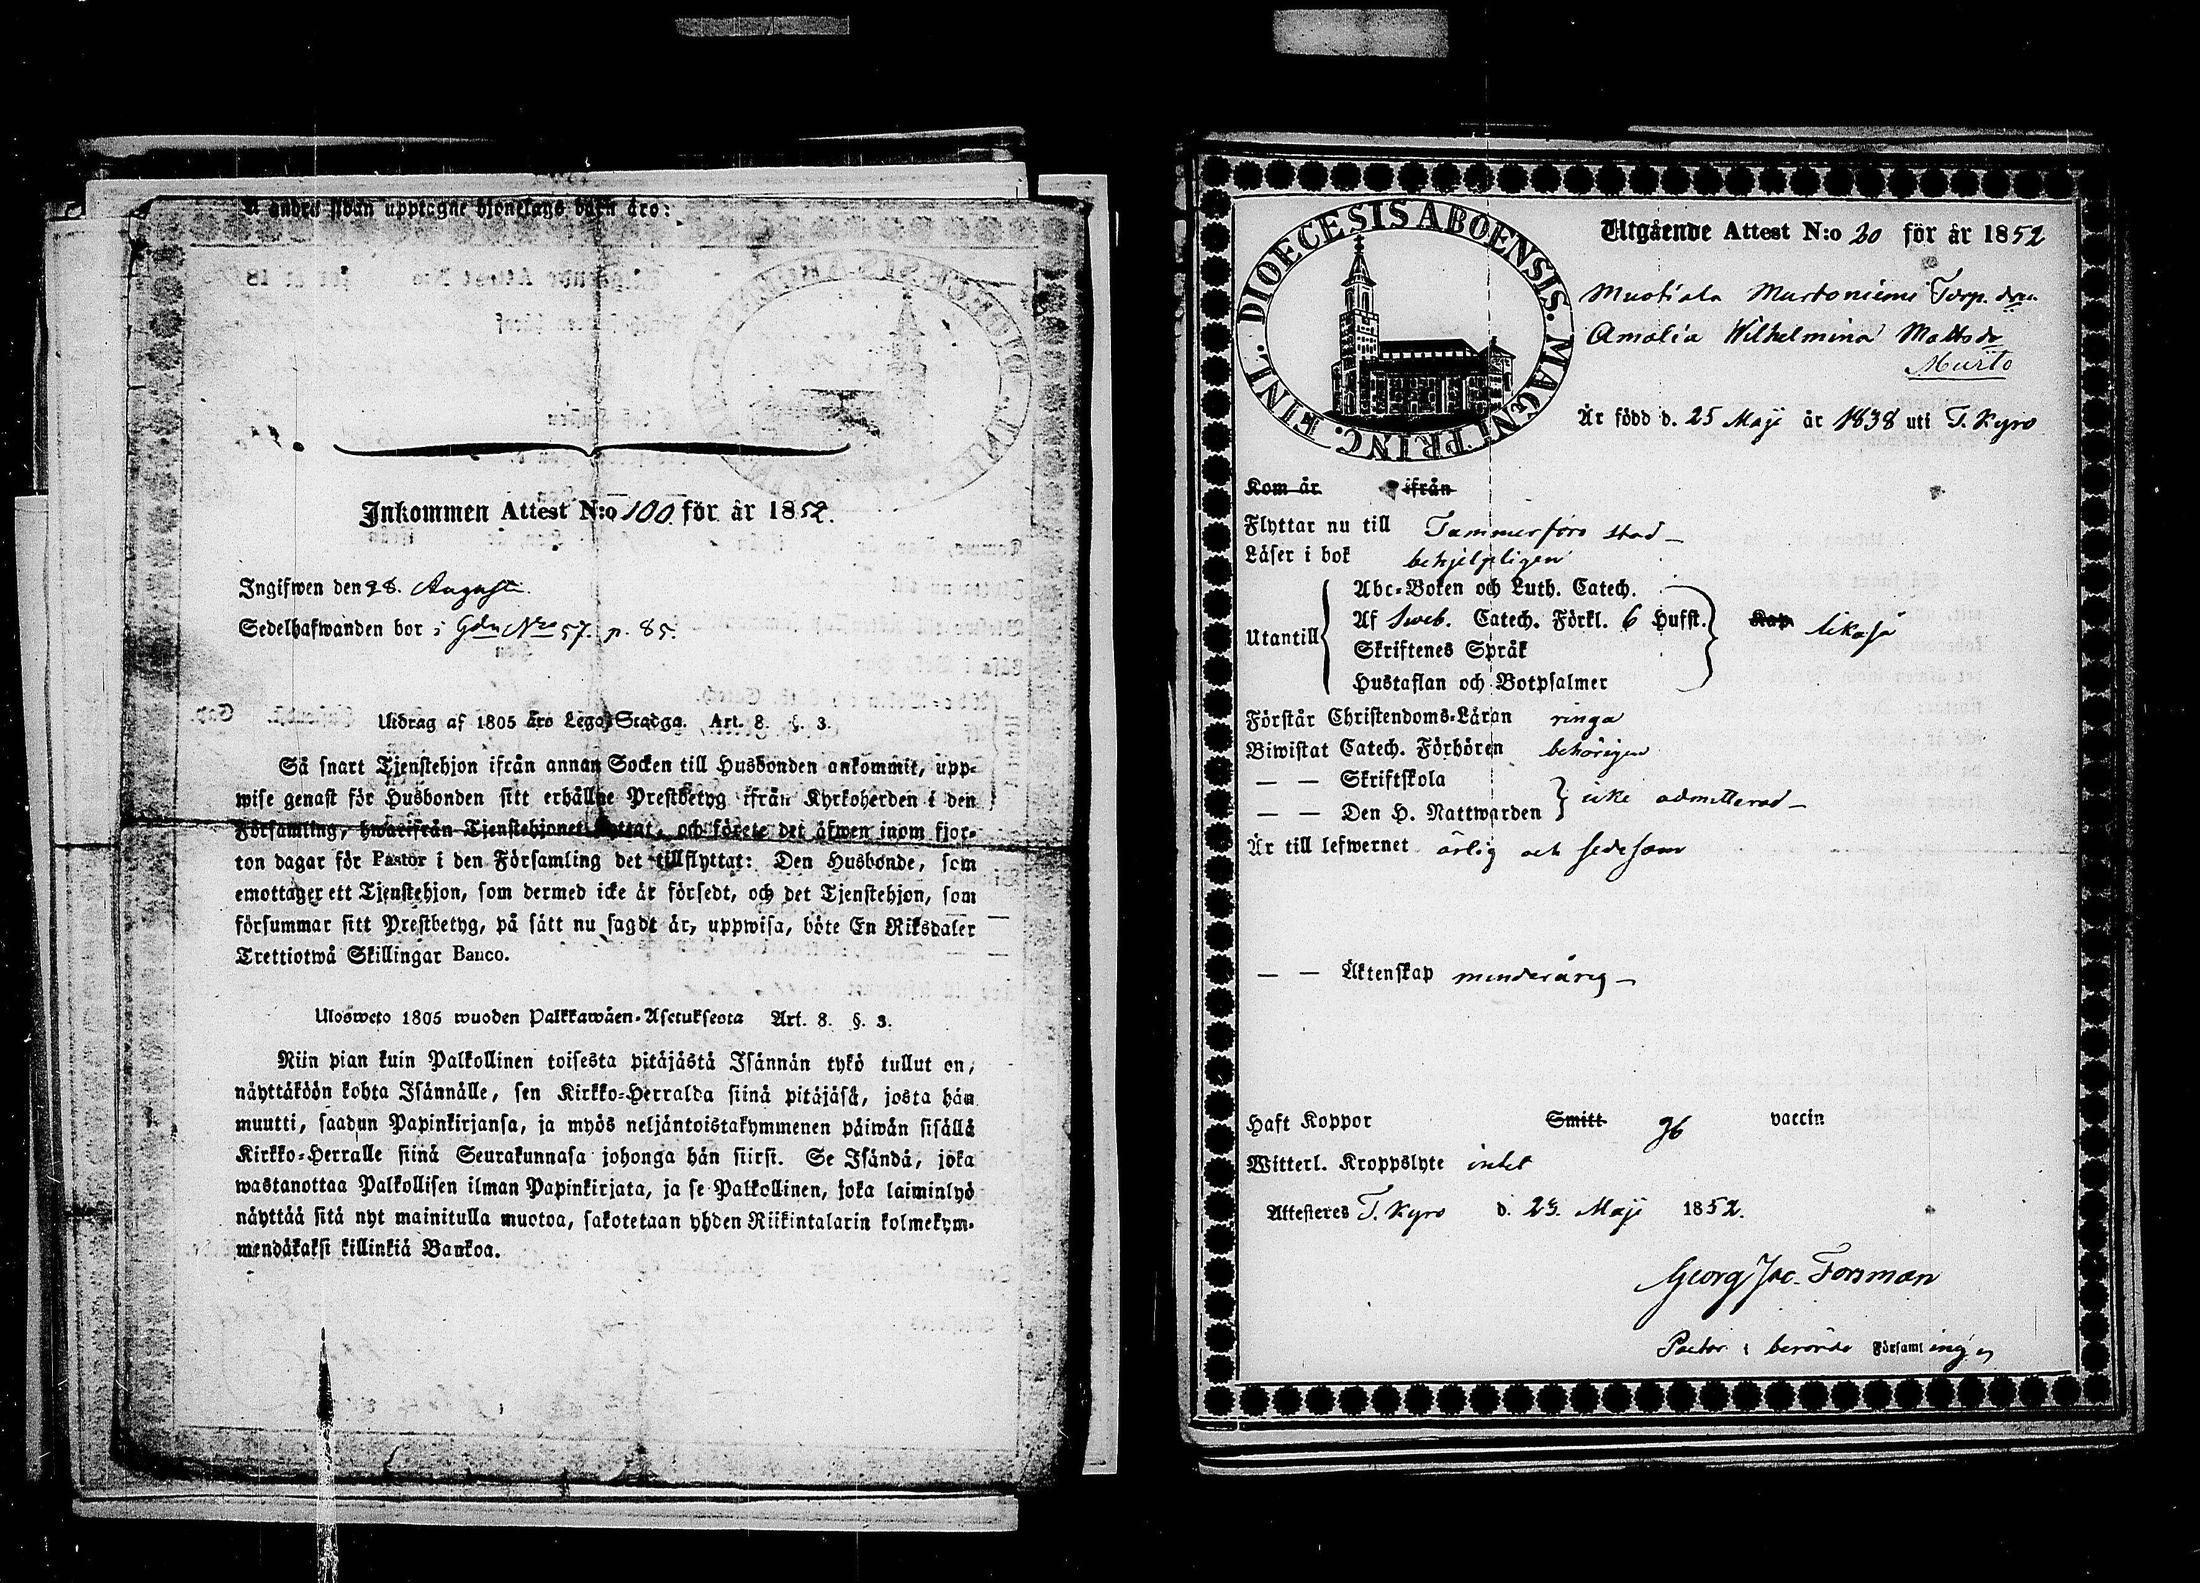 å andra sidan upptagne hjonelags barn äro:
Inkommen Attest N:o 100 för år 1852.
Ingifwen den 28. Augusti.
Sedelhafwanden bor i Gdn No 57. p. 85.
Utdrag af 1805 års Lego-Stadga. Art. 8. §. 3.
Så snart Tjenstehjon ifrån annan Socken till Husbonden ankommit, upp-
wise genast för Husbonden sitt erhållne Prestbetyg ifrån Kyrkoherden i den
Församling, hwarifrån Tjenstehjonet flyttat, och förete det äfwen inom fjor-
ton dagar för Pastor i den Församling det tillflyttat: Den Husbonde, som
emottager ett Tjenstehjon, som dermed icke är försedt, och det Tjenstehjon, som
försummar sitt Prestbetyg, på sätt nu sagdt är, uppwisa, böte En Riksdaler
Trettiotwå Skillingar Banco.
Ulosweto 1805 wuoden Palkkawäen-Asetuksesta Art. 8. §. 3.
Niin pian kuin Palkollinen toisesta pitäjästä Isännän tykö tullut on,
näyttäköön kohta Isännälle, sen Kirkko-Herralda siinä pitäjäsä, josta hän
muutti, saadun Papinkirjansa, ja myös neljäntoistakymmenen päiwän sisällä
Kirkko-Herralle siinä Seurakunnasa johonga hän siirsi. Se Isändä, joka
wastanottaa Palkollisen ilman Papinkirjata, ja se Palkollinen, joka laiminlyö
näyttää sitä nyt mainitulla muotoa, sakotetaan yhden Riikintalarin kolmekym-
mendäkaksi killinkiä Bankoa.
DIOECESIS ABOENSIS. MAGNI PRINC. FINL.
Utgående Attest N:o 20 för år 1852
Muotiala Murtoniemi Torp. dra
Amalia Wilhelmina Mattsdr
Murto
Är född d. 25 Maji år 1838 uti T. Kyro
Kom år ifrån
Flyttar nu till Tammerfors stad
Läser i bok behjelpligen
Utantill
Abc-Boken och Luth. Catech.
Af Sveb. Catech. Förkl. 6 Hufst. Kap likaså
Skriftenes Språk
Hustaflan och Botpsalmer
Förstår Christendoms-Läran ringa
Biwistat Catech. Förhören behörigen
— — Skriftskola
— — Den H. Nattwarden icke admitterad
Är till lefwernet ärlig och sedesam
— — Äktenskap minderårig
Haft Koppor Smitt gb vaccin
Witterl. Kroppslyte intet
Attesteres T. Kyro d. 23. Maji 1852.
Georg Jac. Forsman
Pastor i berörde Församlingen